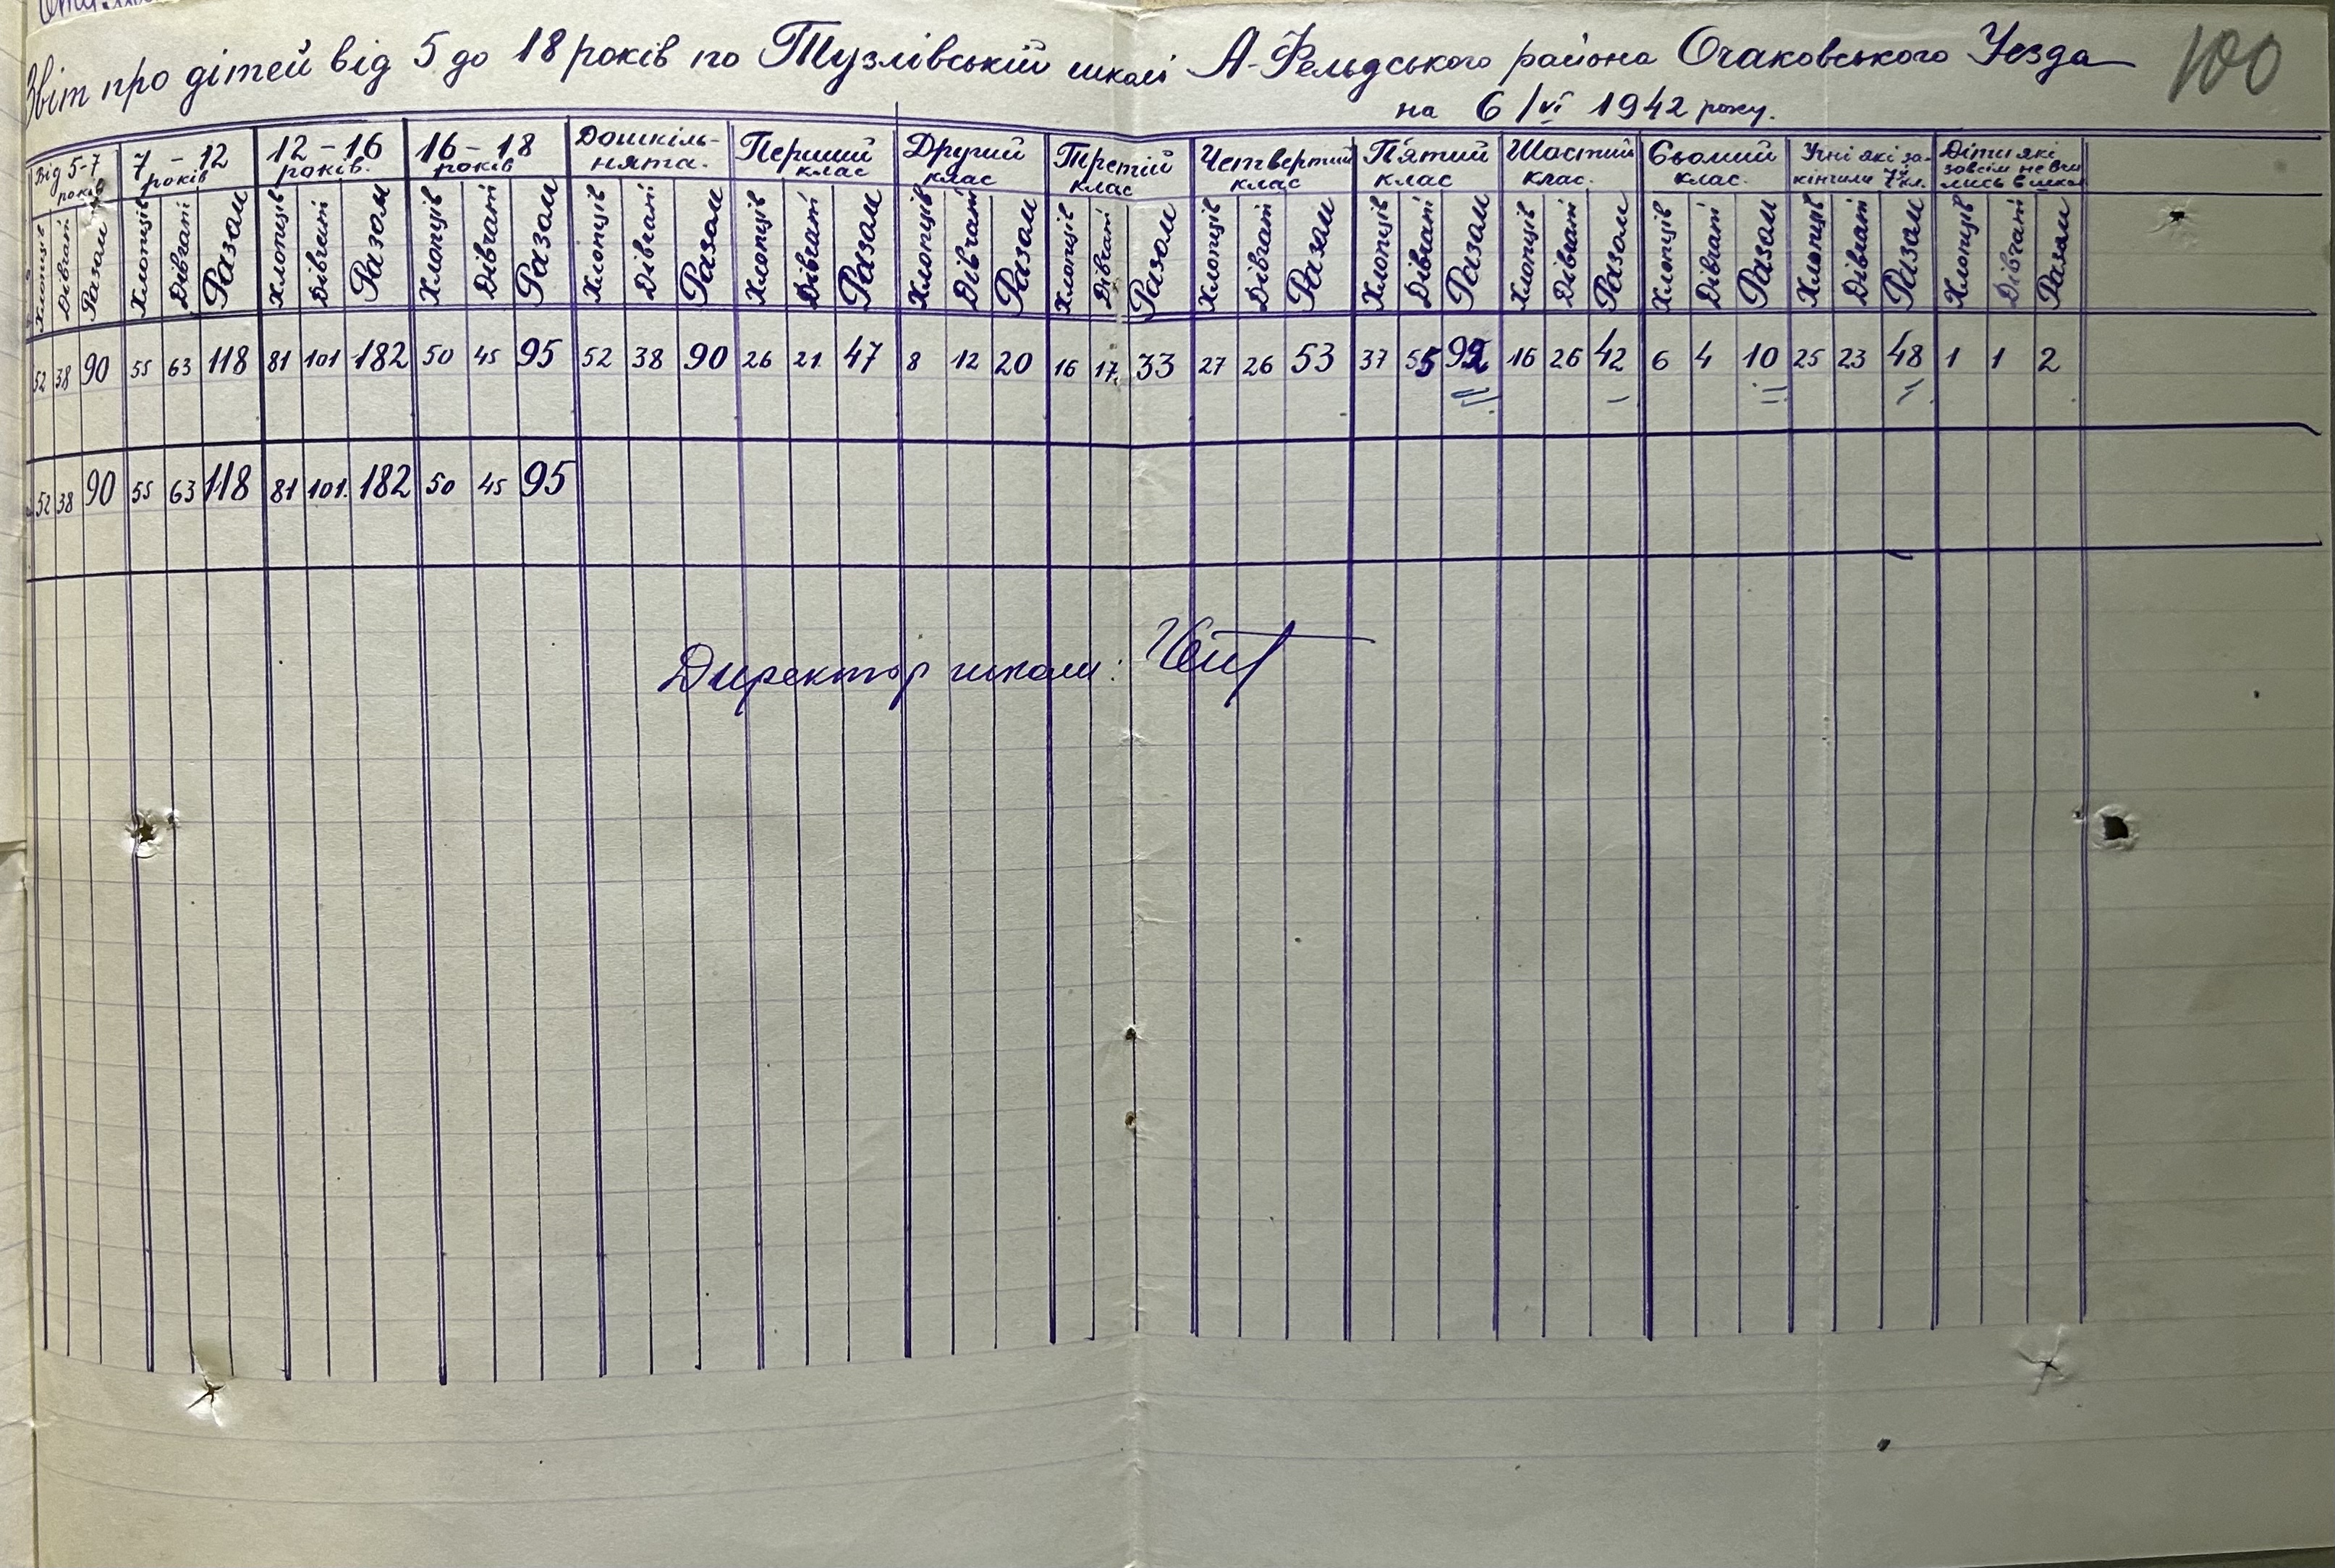 Звіт про дітей від 5 до 18 років по Тузлівській школі А-Фельдського района Очаковського Уезда 100
на 6/VI 1942 року.
Від 5-7 років 7-12 років 12-16 років. 16-18 років Дошкіль-нята. Перший клас Другий клас Третій клас Четвертий клас П'ятий клас Шостий клас. Сьомий клас. Учні які за-кінчили 7 кл. Діти які зовсім не вчи лись в школі
Хлопців Дівчат Разом Хлопців Дівчат Разом Хлопців Дівчат Разом Хлопців Дівчат Разом Хлопців Дівчат Разом Хлопців Дівчат Разом Хлопців Дівчат Разом Хлопців Дівчат Разом Хлопців Дівчат Разом Хлопців Дівчат Разом Хлопців Дівчат Разом Хлопців Дівчат Разом Хлопців Дівчат Разом Хлопців Дівчат Разом
52 38 90 55 63 118 81 101 182 50 45 95 52 38 90 26 21 47 8 12 20 16 17 33 27 26 53 37 55 92 16 26 42 6 4 10 25 23 48 1 1 2
52 38 90 55 63 118 81 101. 182 50 45 95
Директор школи: